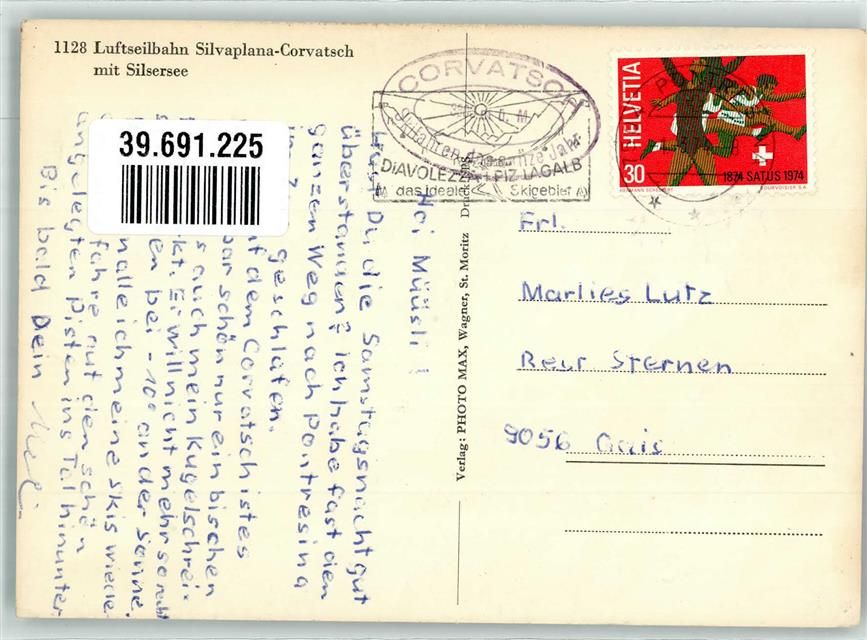 1128 Luftseilbahn Silvaplana-Corvatsch
mit Silsersee
39.691.225
CORVATSCH
Skifahren das ganze Jahr
DiAVOLEZZA + PIZ LAGALB
das ideale Skigebiet
HELVETIA
30
1874 SATUS 1974
COURVOISIER S.A.
Verlag: PHOTO MAX, Wagner, St. Moritz
Frl.
Marlies Lutz
Rest Sternen
9056 Gais
Hoi Müüsli!
Hast Du die Samstagsnacht gut
überstanden? ich habe fast den
ganzen Weg nach Pontresina
geschlafen.
auf dem Corvatsch ist es
bar schön nur ein bischen
auch mein Kugelschrei-
kt. Er will nicht mehr so recht
en bei -10° an der Sonne.
nalle ich meine Skis wieder
fahre auf den schön
angelegten Pisten ins Tal hinunter
Bis bald Dein